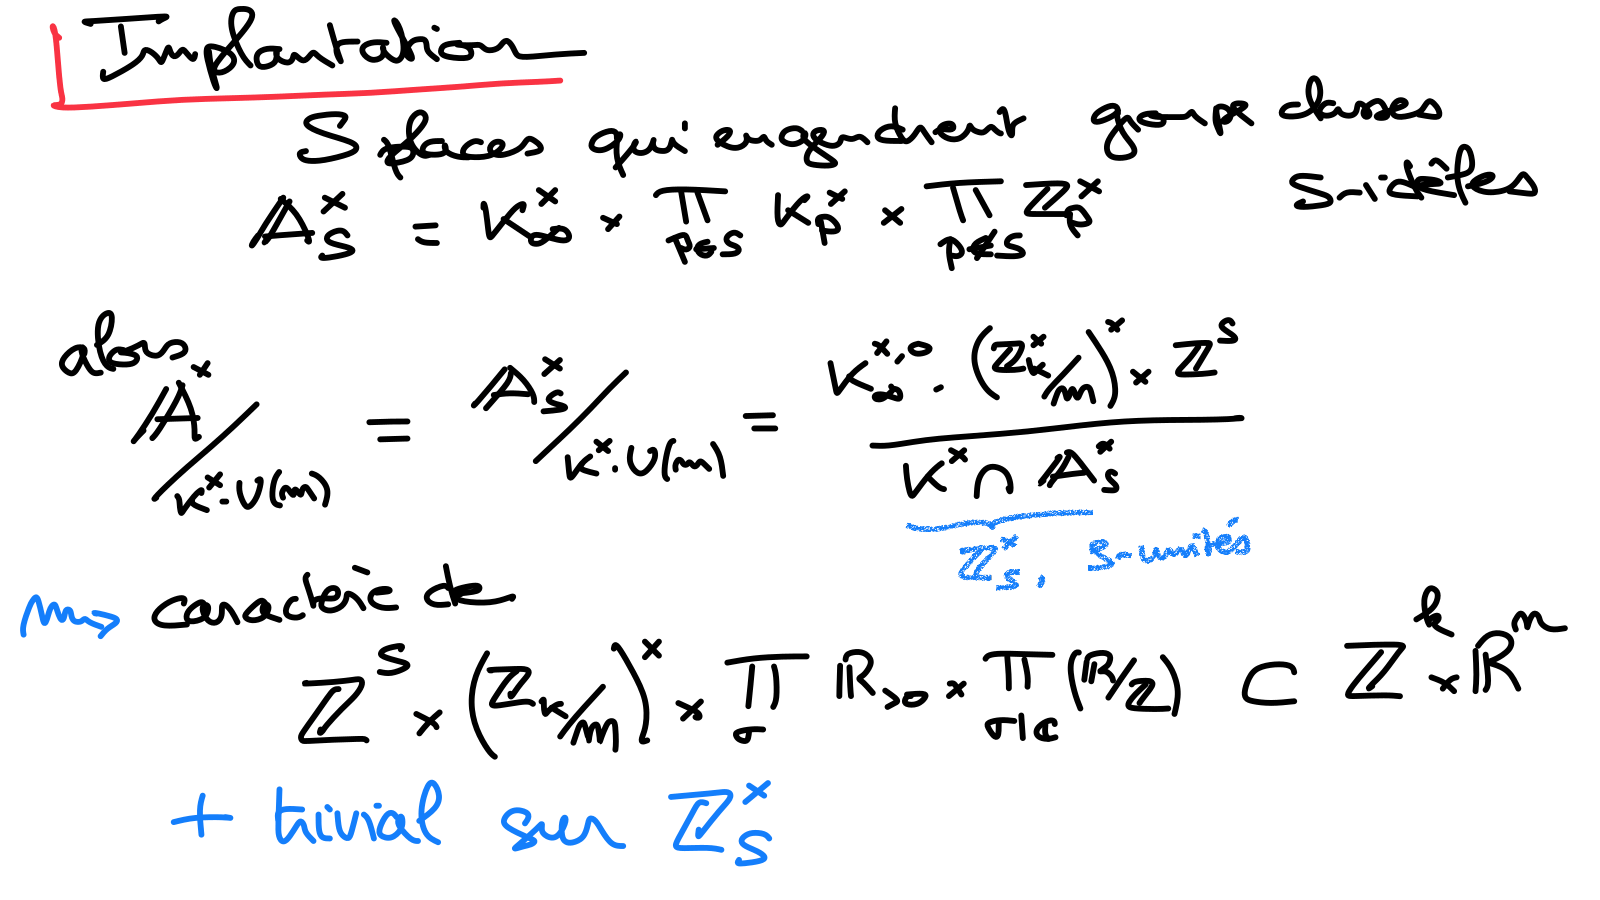 Implantation
S places qui engendrent groupe classes
S-idèles
𝔸_S^× = K_∞^× × ∏_{p∈S} K_p^× × ∏_{p∉S} ℤ_p^×
alors
𝔸^× / K^×·U(m) = 𝔸_S^× / K^×·U(m) = K_∞^{×,0} · (ℤ_K^×/m)^× × ℤ^S / K^× ∩ 𝔸_S^×
ℤ_S^×, S-unités
→ caractère de
ℤ^S × (ℤ_K/m)^× × ∏_σ ℝ_{>0} × ∏_{σ|ℂ} (ℝ/ℤ) ⊂ ℤ^k × ℝ^n
+ trivial sur ℤ_S^×